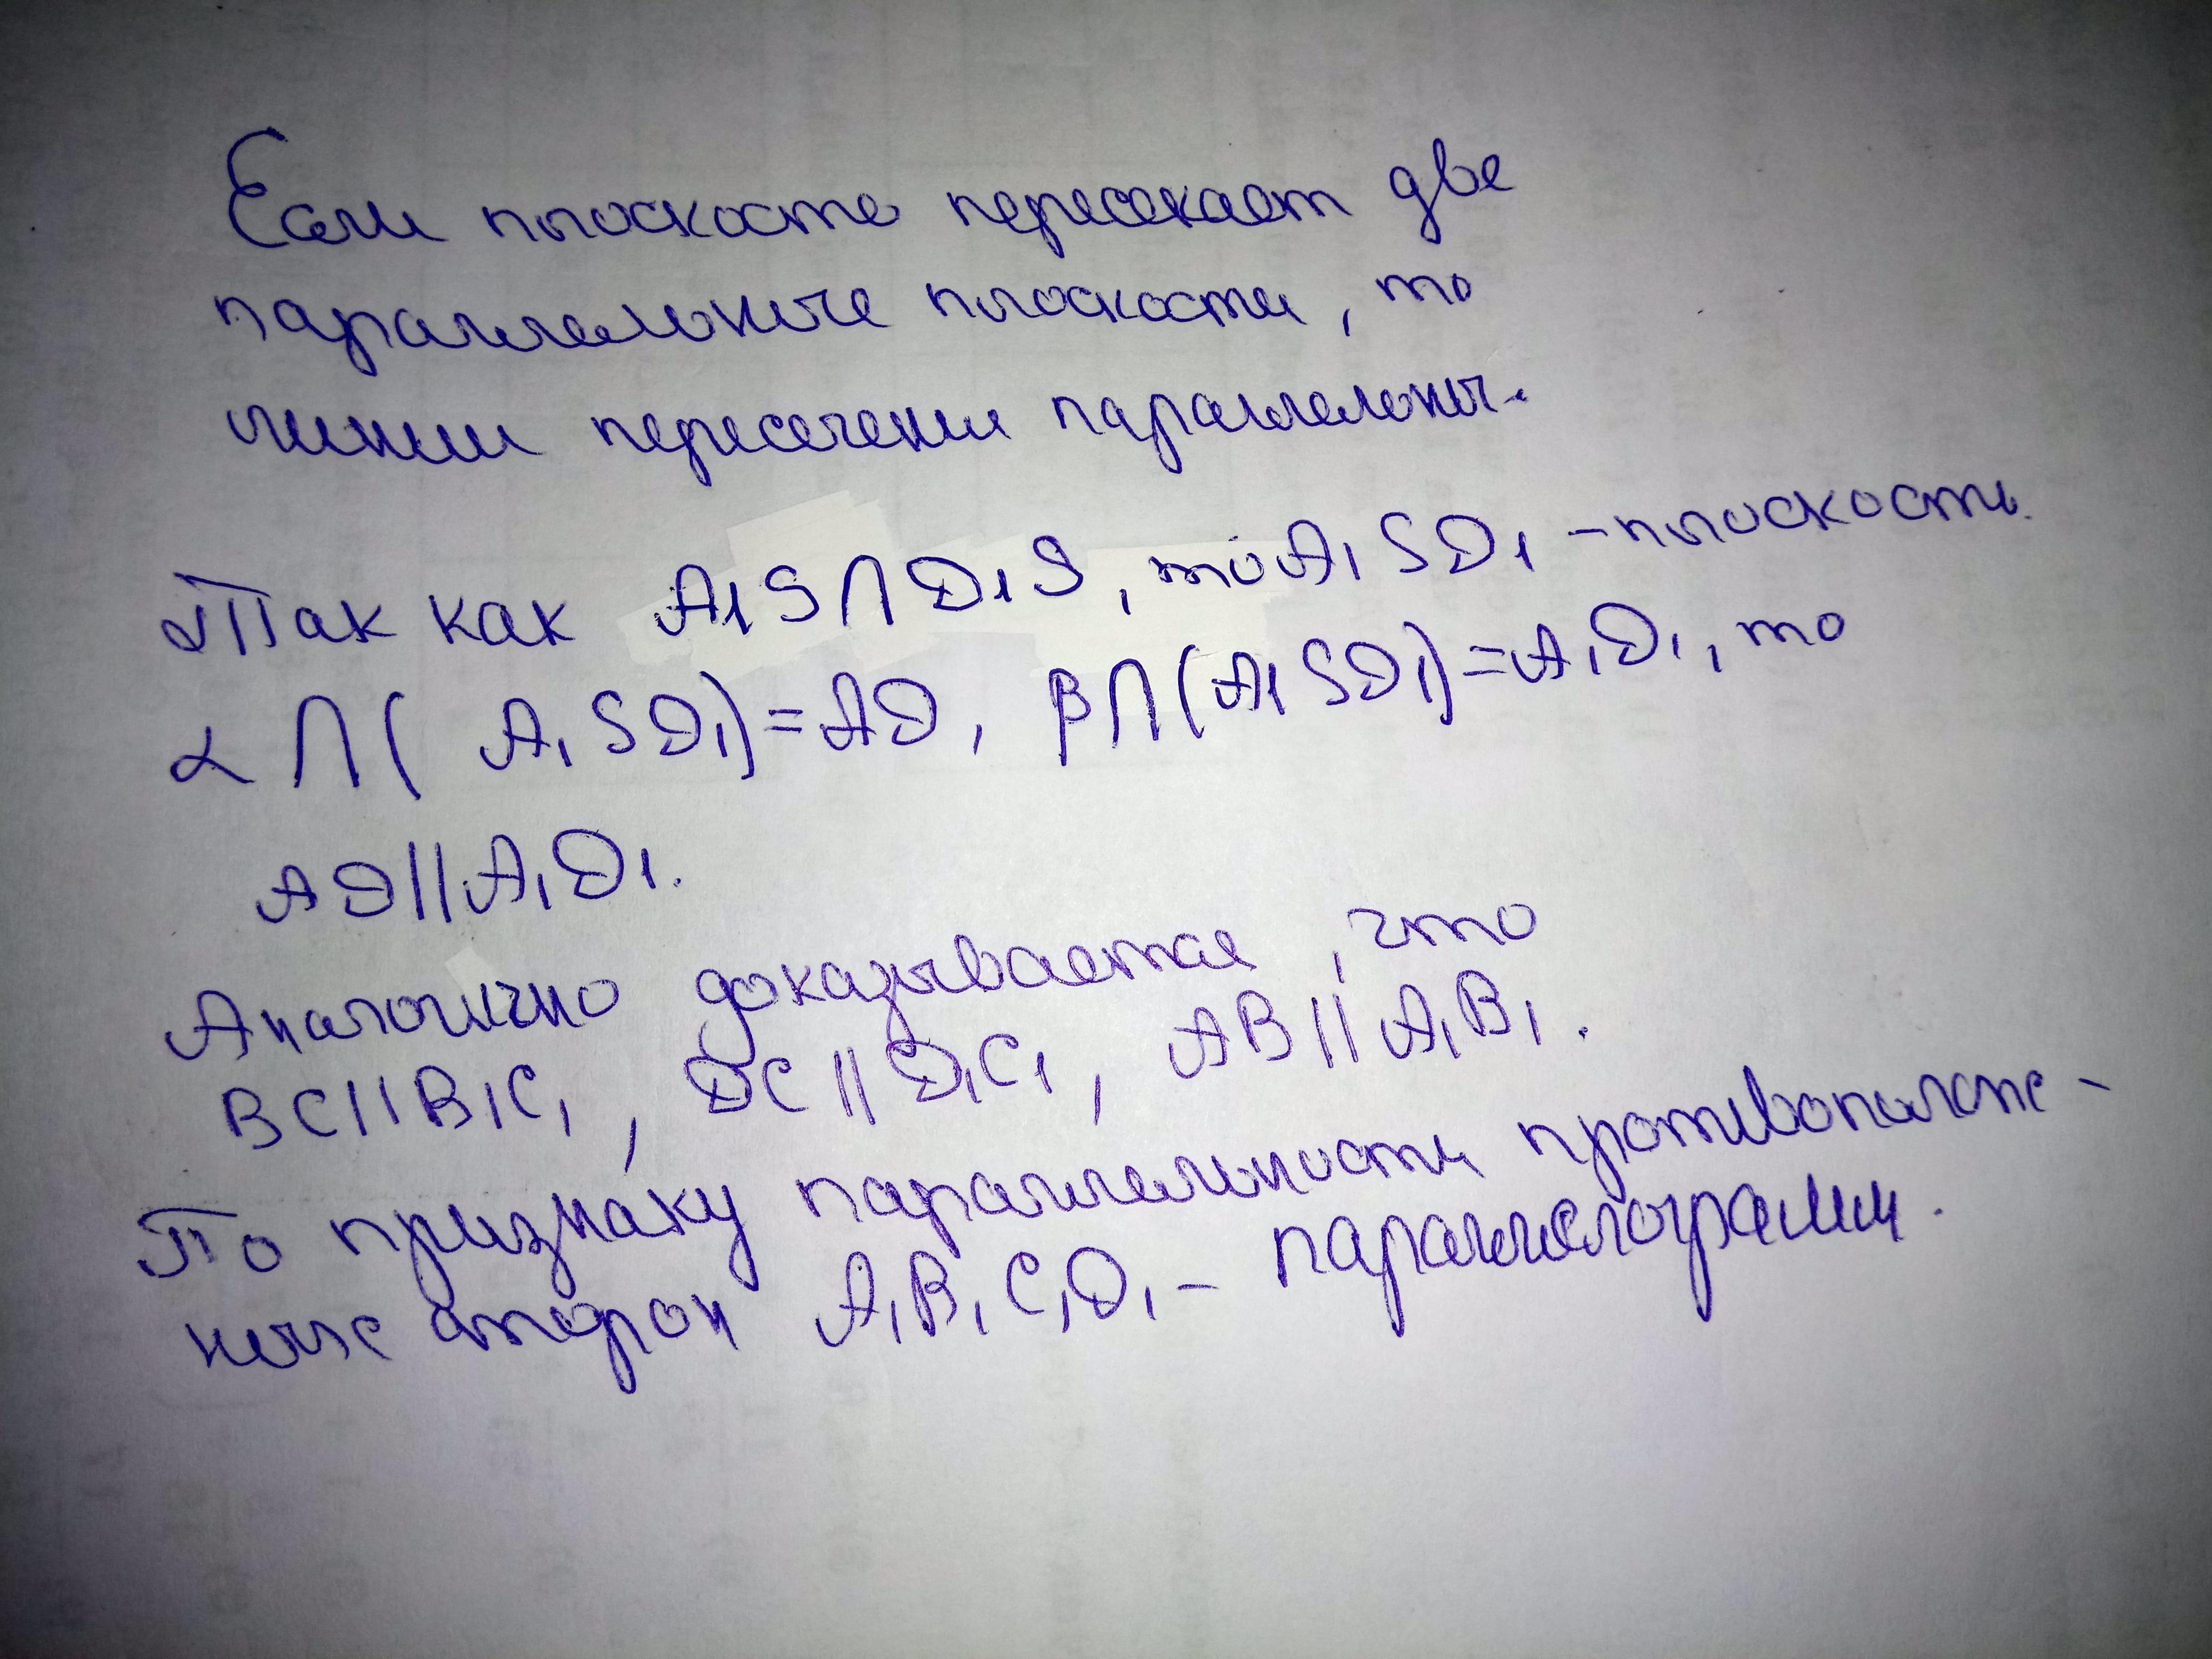 Если плоскость пересекает две
параллельные плоскости, то
линии пересечения параллельны.
Так как A₁S∩D₁S, то A₁SD₁ – плоскость.
α∩(A₁SD₁)=AD, β∩(A₁SD₁)=A₁D₁, то
AD||A₁D₁.
Аналогично доказывается, что
BC||B₁C₁, DC||D₁C₁, AB||A₁B₁.
По признаку параллельности противополож-
ных сторон A₁B₁C₁D₁ – параллелограмм.